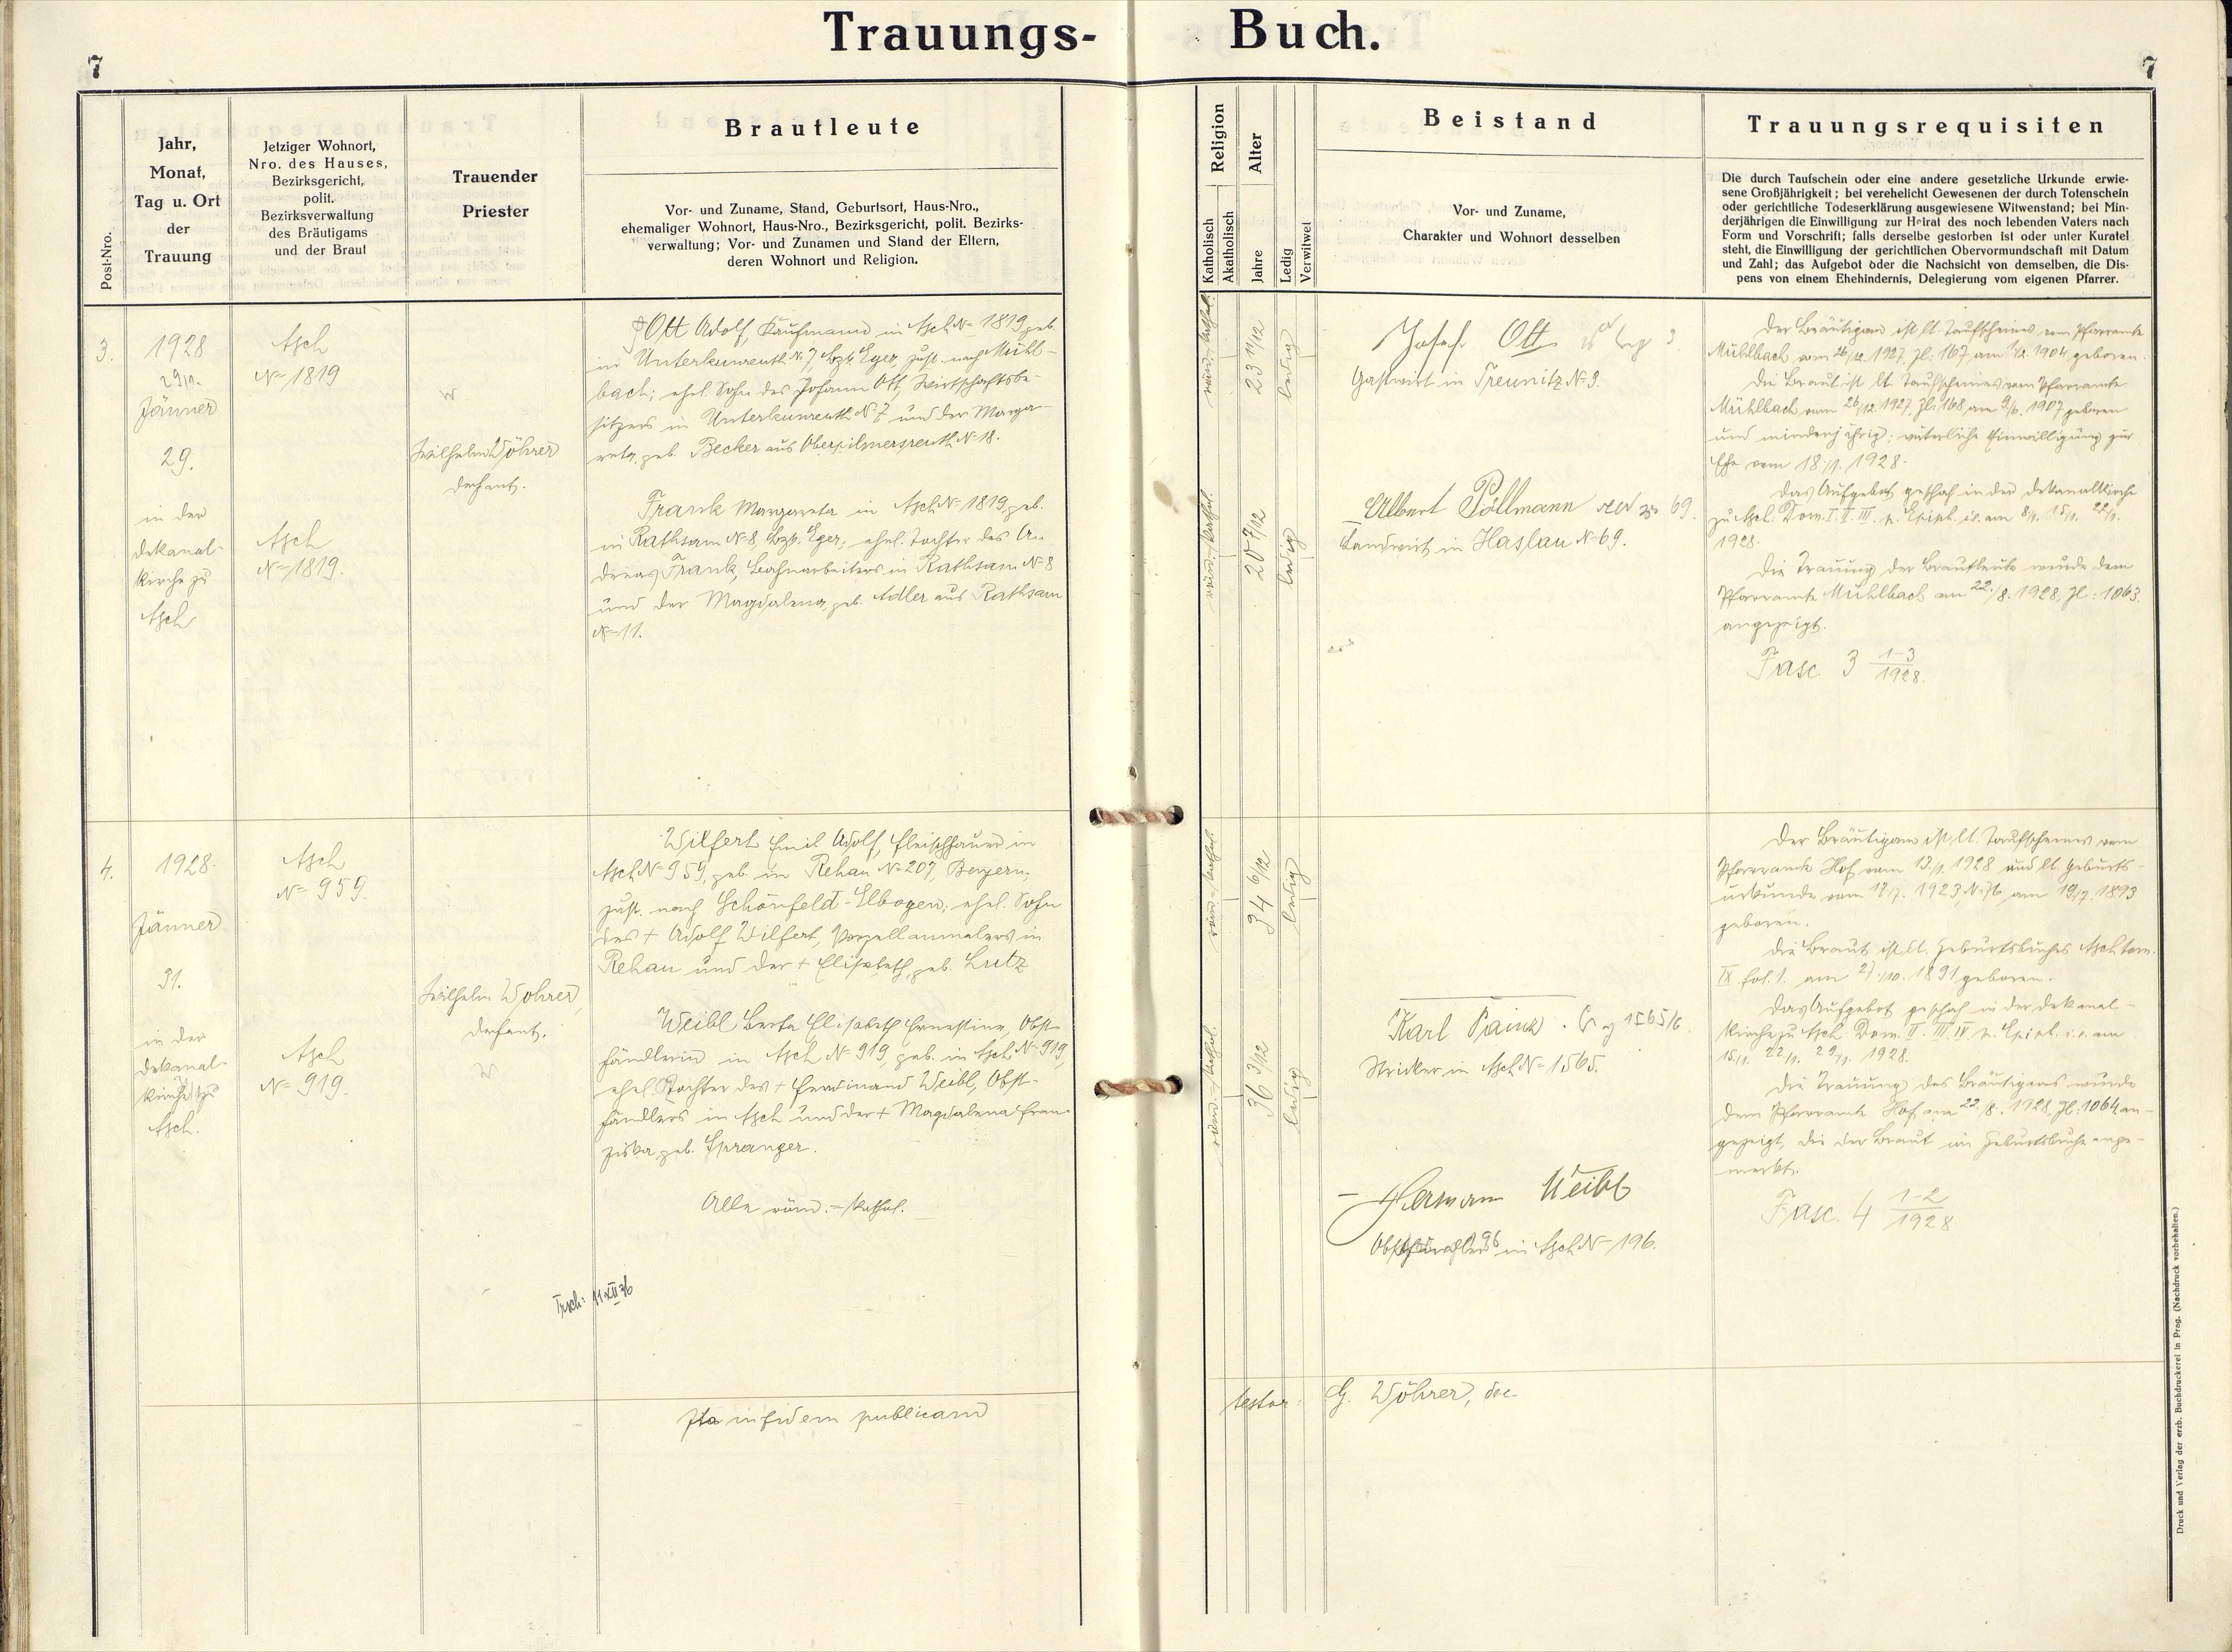 Trauungs- Buch.
7
7
Post-Nro.
Jahr,
Monat,
Tag u. Ort
der
Trauung
Jetziger Wohnort,
Nro. des Hauses,
Bezirksgericht,
polit.
Bezirksverwaltung
des Bräutigams
und der Braut
Trauender
Priester
Brautleute
Vor- und Zuname, Stand, Geburtsort, Haus-Nro.,
ehemaliger Wohnort, Haus-Nro., Bezirksgericht, polit. Bezirks-
verwaltung; Vor- und Zunamen und Stand der Eltern,
deren Wohnort und Religion.
Religion
Katholisch
Akatholisch
Alter
Jahre
Ledig
Verwitwet
Beistand
Vor- und Zuname,
Charakter und Wohnort desselben
Trauungsrequisiten
Die durch Taufschein oder eine andere gesetzliche Urkunde erwie-
sene Großjährigkeit; bei verehelicht Gewesenen der durch Totenschein
oder gerichtliche Todeserklärung ausgewiesene Witwenstand; bei Min-
derjährigen die Einwilligung zur Heirat des noch lebenden Vaters nach
Form und Vorschrift; falls derselbe gestorben ist oder unter Kuratel
steht, die Einwilligung der gerichtlichen Obervormundschaft mit Datum
und Zahl; das Aufgebot oder die Nachsicht von demselben, die Dis-
pens von einem Ehehindernis, Delegierung vom eigenen Pfarrer.
3.
1928
29/1.
Jänner
29.
in der
Dekanal-
kirche zu
Asch
Asch
N= 1819
Asch
N= 1819.
W
Wilhelm Wöhrer
Dechant.
Ott Adolf, Kaufmann in Asch N= 1819, geb.
in Unterkunreuth N= 7, Bzk. Eger, zust. nach Mühl-
bach; ehel. Sohn des Johann Ott, Wirtschaftsbe-
sitzers in Unterkunreuth N= 7 und der Marga-
reta, geb. Becker aus Oberpilmersreuth N= 18.
Frank Margareta in Asch N= 1819, geb.
in Rathsam N= 8, Bzk. Eger; ehel. Tochter des An-
dreas Frank, Bahnarbeiters in Rathsam N= 8
und der Magdalena, geb. Adler aus Rathsam
N= 11.
röm. kathol.
23 11/12
ledig
röm. kathol.
20 7/12
ledig
Josef Ott
Gastwirt in Treunitz N= 3.
Albert Pöllmann 69.
Landwirt in Haslau N= 69.
Der Bräutigam ist lt. Taufscheines vom Pfarramte
Mühlbach vom 26/12. 1927, Zl. 167 am 1904 geboren.
Die Braut ist lt. Taufscheines vom Pfarramte
Mühlbach vom 26/12. 1927, Zl. 168 am 9/6. 1907 geboren
und minderjährig; väterliche Einwilligung zur
Ehe vom 18./1. 1928.
Das Aufgebot geschah in der Dekanalkirche
zu Asch: Dom. I. II. III. p. Epiph. i.e. am 8/1. 15/1. 22/1.
1928.
Die Trauung der Brautleute wurde dem
Pfarramte Mühlbach am 22./8. 1928, Zl: 1063.
angezeigt.
Fasc 3 1-3/1928.
4.
1928.
Jänner
31.
in der
Dekanal-
kirche zu
Asch.
Asch
N= 959.
Asch
N= 919.
Wilhelm Wöhrer,
Dechant.
W
Wilfert Emil Adolf, Fleischhauer in
Asch N= 959, geb. in Rehau N= 207, Bayern,
zust. nach Schönfeld-Elbogen; ehel. Sohn
des + Adolf Wilfert, Porzellanmalers in
Rehau und der + Elisabeth, geb. Lutz
Weibl Berta Elisabeth Ernestine, Obst-
händlerin in Asch N= 919, geb. in Asch N= 919,
ehel. Tochter des + Ferdinand Weibl, Obst-
händlers in Asch und der + Magdalena Fran-
ziska, geb. Spranger.
Alle röm.-kathol.
Trsch: 11.XII 36
röm. kathol.
34 6/12
ledig
röm. kathol.
36 3/12
ledig
Karl Painz 1565/6
Stricker in Asch N= 1565.
Hermann Weibl
Obsthändler in Asch N= 196.
Der Bräutigam ist lt. Taufscheines vom
Pfarramte Hof vom 13/1. 1928 und lt. Geburts-
urkunde vom 17/7. 1923, N= 76 am 19/7. 1893
geboren.
Die Braut ist lt. Geburtsbuches Asch tom.
IX fol. 1. am 27./10. 1891 geboren.
Das Aufgebot geschah in der Dekanal-
kirche zu Asch Dom. II. III. IV. p. Epiph. i.e. am
15/1. 22/1. 29/1. 1928.
Die Trauung des Bräutigams wurde
dem Pfarramte Hof am 22./8. 1928, Zl: 1064 an-
gezeigt, die der Braut im Geburtsbuche ange-
merkt.
Fasc. 4 1-2/1928.
Ita in fidem publicam
testor: G. Wöhrer, dec.
Druck und Verlag der erzb. Buchdruckerei in Prag. (Nachdruck vorbehalten.)